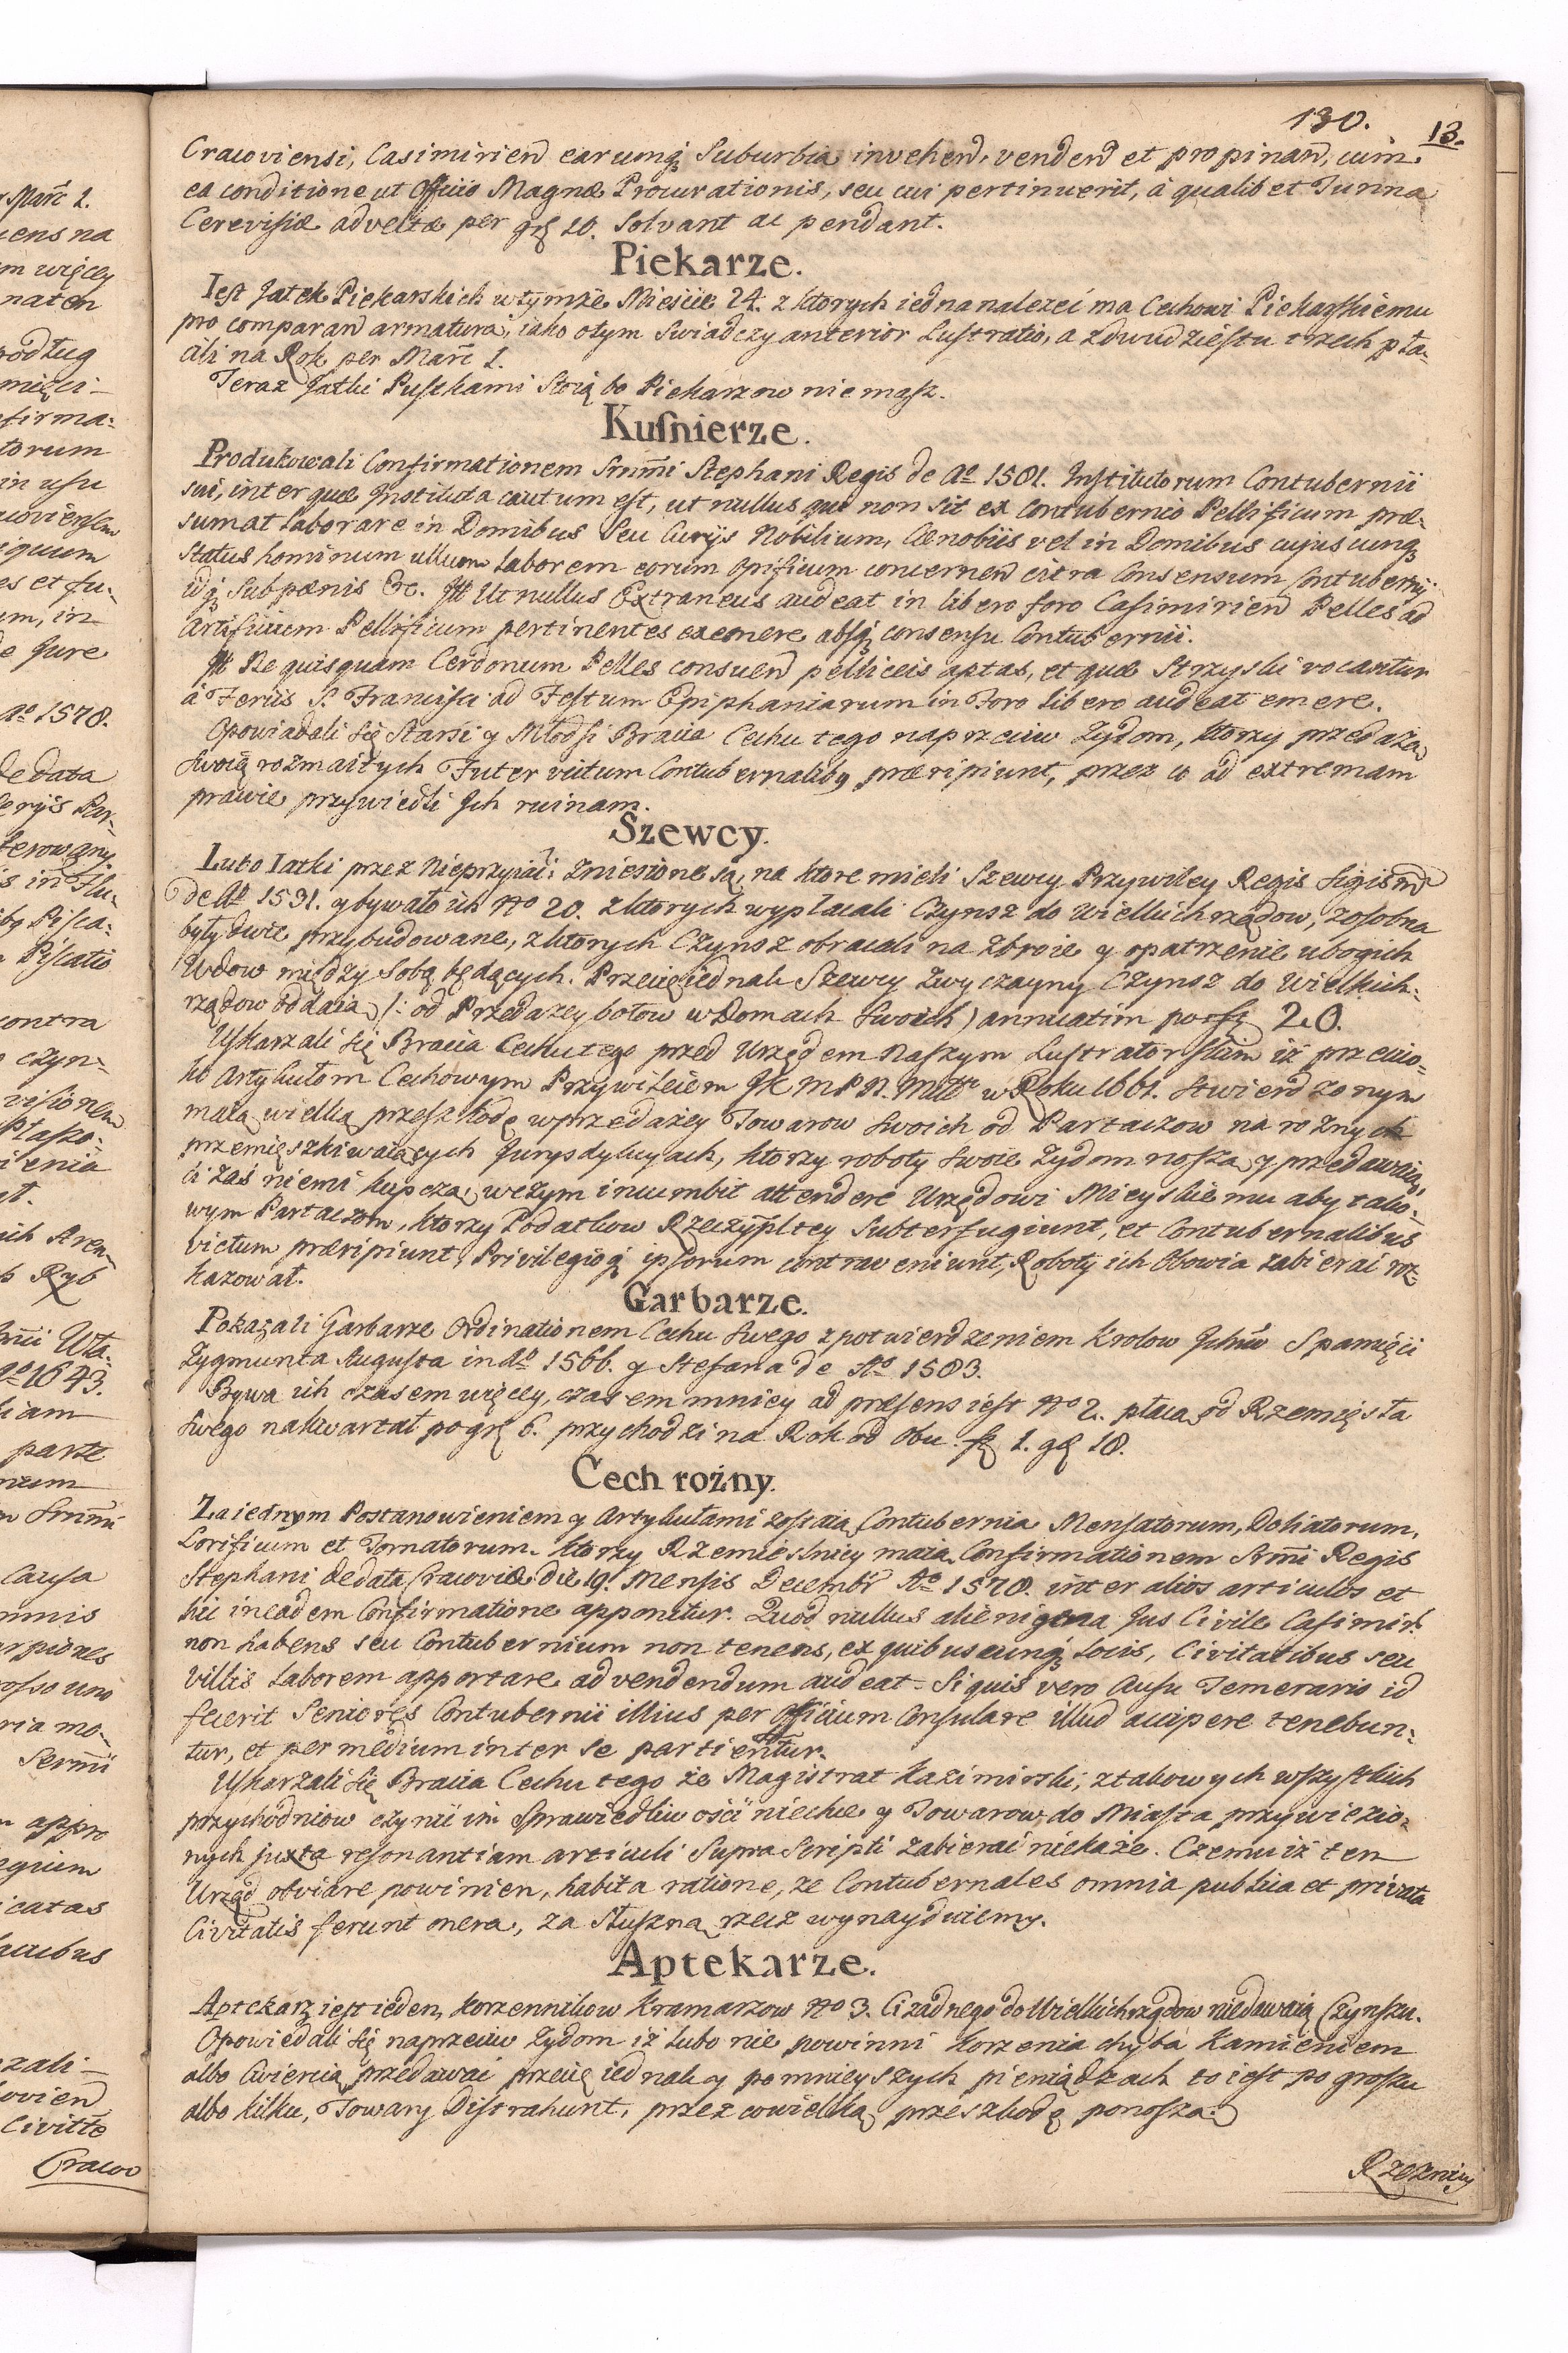 130.
13.
Cracoviensi, Casimirien earumq; Suburbia invehend, vendend et propinan, cum
ea conditione ut Officio Magnæ Procurationis, seu cui pertinuerit, à qualibet Tunna
Cerevisiæ advectæ per gr 20. solvant ac pendant.
Piekarze.
Iest Jatek Piekarskich w tymże Miescie 24. z ktorych iedna nalezeć ma Cechowi Piekarskiemu
pro comparan armatura, iako o tym swiadczy anterior Lustratio, a z dwudziestu trzech pła-
cili na Rok per Març 1.
Teraz Jatki Pustkami stoią bo Piekarzow niemasz.
Kusnierze.
Produkowali Confirmationem Srmi Stephani Regis de Aº 1581. Institutorum Contubernii
sui, inter quæ Instituta cautum est, ut nullus qui non sit ex Contubernio Pellificum præ-
sumat laborare in Domibus seu Curijs Nobilium, Cænobiis vel in Domibus cujuscunq;
status hominum ullum laborem eorum Opificium concernen citra Consensum Contubernij
idq; sub pænis &c. It Ut nullus Extraneus audeat in libero foro Casimirien Pelles ad
Artificium Pellificum pertinentes exemere absq; consensu Contubernii.
It Ne quisquam Cerdonum Pelles consuen pelliceis aptas, et quæ Strzyski vocantur
à Feriis S. Francisci ad Festum Epiphaniarum in Foro libero audeat emere.
Opowiadali się Starsi y Młodsi Bracia Cechu tego naprzeciw Zydom, ktorzy przedażą
swoią rozmaitych Futer victum Contubernalibq præripiunt, przez co ad extremam
prawie przywiedli Ich ruinam.
Szewcy.
Lubo Iatki przez Nieprzyiać: zniesione są, na ktore mieli Szewcy Przywiley Regis Sigism
de Aº 1531. y bywało ich Nº 20. z ktorych wypłacali Czynsz do wielkich rządow, zosobna
były dwie przybudowane, z ktorych Czynsz obracali na zbroie y opatrzenie ubogich
Wdow między sobą będących. Przecię iednak Szewcy zwyczayny Czynsz do Wielkich-
rządow oddaią /: od Przedaży botow w Domach swoich) annuatim po fl 20.
Uskarzali się Bracia Cechu tego przed Urzędem naszym Lustratorskim iż przeciw-
ko Artykułom Cechowym Przywileiem JK M P N. Mttc w Roku 1661. stwierdzonym
maią wielką przeszkodę w przedaży Towarow swoich od Partaczow na rożnych
przemięszkiwaiących Jurysdykcyach, ktorzy roboty swoie Zydom noszą y przedawaią,
ci zaś niemi kupczą, w czym incumbit attendere Urzędowi Mieyskiemu aby tako-
wym Partaczom, ktorzy Podatkow Rzeczypltey subterfugiunt, et Contubernalibus
victum præripiunt, Privilegioq; ipsorum contraveniunt, Roboty ich Obowia zabierać roz-
kazował.
Garbarze.
Pokazali Garbarze Ordinationem Cechu swego z potwierdzeniem Krolow Ichmw S pamięci
Zygmunta Augusta in Aº 1566. y Stefana de Aº 1583.
Bywa ich czasem więcey, czasem mniey ad præsens iest Nº 2. płacą od Rzemięsła
swego na kwartał po gr 6. przychodzi na Rok od obu fl 1. gr 18.
Cech rożny.
Za iednym Postanowieniem y Artykułami zostaią Contubernia Mensatorum, Doliatorum,
Lorificum et Tornatorum. ktorzy Rzemiesłnicy maią Confirmationem Srmi Regis
Stephani de data Cracoviæ die 19. Mensis Decembr Aº 1578. inter alios articulos et
hic in eadem Confirmatione apponitur. Quod nullus alienigena Jus Civile Casimir:
non habens seu Contubernium non tenens, ex quibuscunq; locis, Civitatibus seu
villis laborem apportare ad vendendum audeat. Si quis vero Ausu Temerario id
fecerit Seniores Contubernii illius per Officium Consulare illud accipere tenebun-
tur, et per medium inter se partientur.
Uskarzali się Bracia Cechu tego że Magistrat Kazimirski, z takowych wszystkich
przychodniow czynić im Sprawiedliwości niechce y Towarow do Miasta przywiezio-
nych juxta resonantiam articuli supra scripti zabierać niekaże. Czemu iż ten
Urząd obviare powinien, habita ratione, ze Contubernales omnia publica et privata
Civitatis ferunt onera, za słuszną rzecz wynaydwiemy.
Aptekarze.
Aptekarz iest ieden, Korzennikow Kramarzow Nº 3. Ci żadnego do Wielkichrządow niedawaią Czynszu.
Opowiedali się naprzeciw Zydom iż lubo nie powinni Korzenia chyba Kamieniem
albo Cwiercią przedawać przecię iednak y po mnieyszych pieniądzach to iest po groszu
albo kilku, Towary Distrahunt, przez co wielką przeszkodę ponoszą.
Rzeznicy